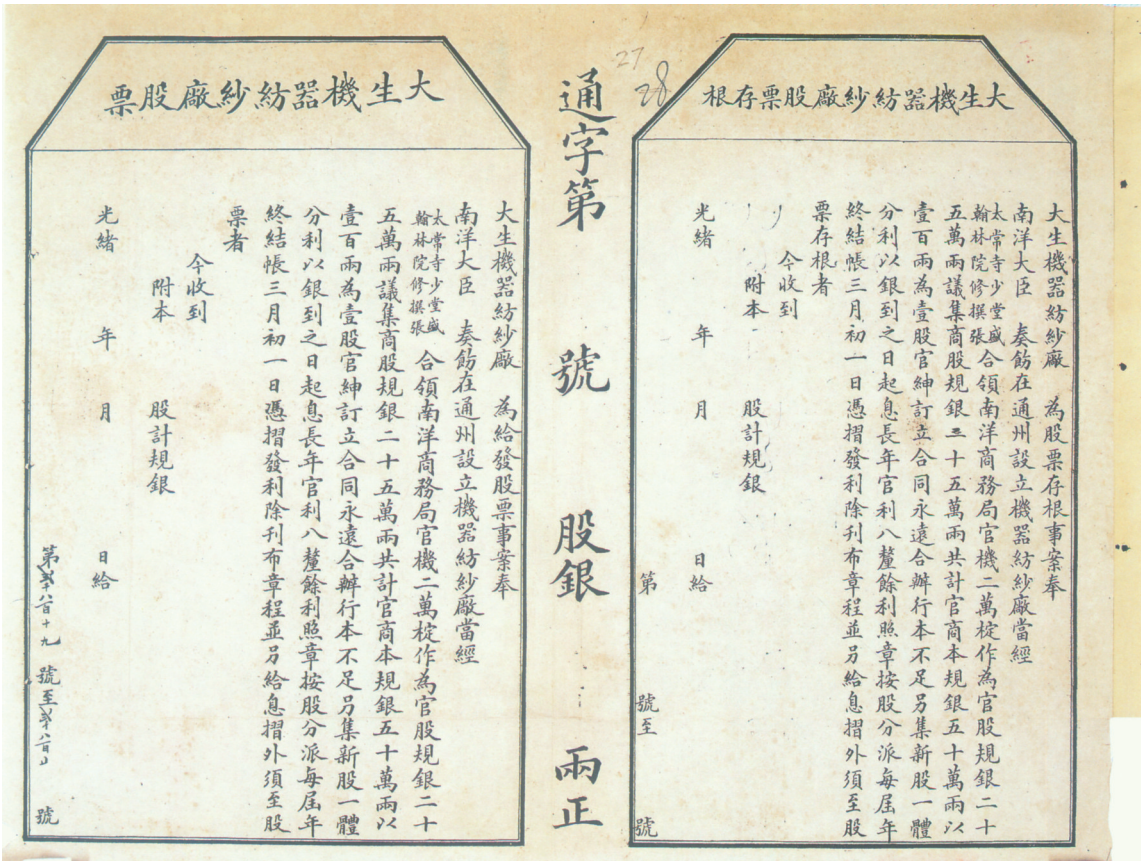 大生機器紡紗廠股票存根
大生機器紡紗廠 為股票存根事案奉
南洋大臣 奏飭在通州設立機器紡紗廠當經
太常寺少堂盛
翰林院修撰張
合領南洋商務局官機二萬梃作為官股規銀二十
五萬兩議集商股規銀二十五萬兩共計官商本規銀五十萬兩以
壹百兩為壹股官紳訂立合同永遠合辦行本不足另集新股一體
分利以銀到之日起息長年官利八釐餘利照章按股分派每屆年
終結帳三月初一日憑摺發利除刊布章程並另給息摺外須至股
票存根者
今收到
附本 股計規銀
光緒 年 月 日給
第 號至 號
27
28
通字第 號 股銀 兩正
大生機器紡紗廠股票
大生機器紡紗廠 為給發股票事案奉
南洋大臣 奏飭在通州設立機器紡紗廠當經
太常寺少堂盛
翰林院修撰張
合領南洋商務局官機二萬梃作為官股規銀二十
五萬兩議集商股規銀二十五萬兩共計官商本規銀五十萬兩以
壹百兩為壹股官紳訂立合同永遠合辦行本不足另集新股一體
分利以銀到之日起息長年官利八釐餘利照章按股分派每屆年
終結帳三月初一日憑摺發利除刊布章程並另給息摺外須至股
票者
今收到
附本 股計規銀
光緒 年 月 日給
第 十九 號至 號